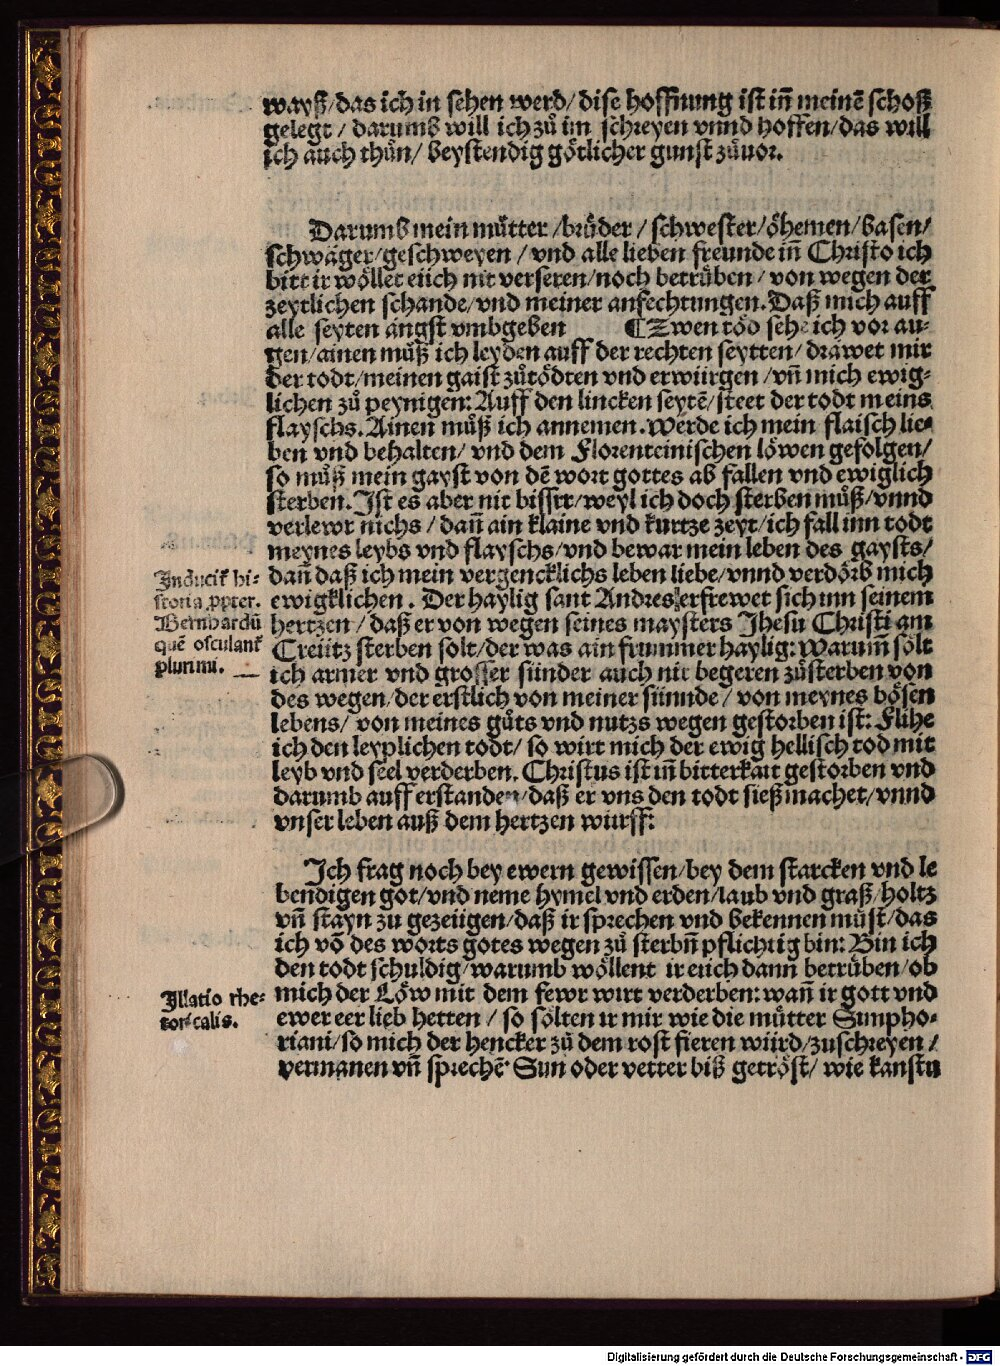 wayß/das ich in sehen werd/dise hoffnung ist in̄ meinē schoß
gelegt / darumb will ich zů im schreyen vnnd hoffen/das will
ich auch thůn/ beystendig götlicher gunst zůuor.
Darumb mein můtter /brůder / schwester/öhemen/basen/
schwäger/geschweyen / vnd alle lieben freunde in̄ Christo ich
bitt ir wöllet eüch nit verseren/noch betrüben / von wegen der
zeytlichen schande/vnd meiner anfechtungen. Daß mich auff
alle seyten angst vmbgeben ⸿Zwen töd sehe ich vor au⸗
gen/ainen můß ich leyden auff der rechten seytten/ dräwet mir
der todt/meinen gaist zůtödten vnd erwürgen /vn̄ mich ewig⸗
lichen zů peynigen: Auff den lincken seytē/steet der todt meins
flayschs. Ainen můß ich annemen. Werde ich mein flaisch lie⸗
ben vnd behalten/ vnd dem Florenteinischen löwen gefolgen/
so můß mein gayst von dē wort gottes ab fallen vnd ewiglich
sterben. Ist es aber nit bisser/weyl ich doch sterben můß/vnnd
verlewr nichs / dan̄ ain klaine vnd kurtze zeyt/ich fall inn todt
meynes leybs vnd flayschs/vnd bewar mein leben des gaysts/
dan̄ daß ich mein vergencklichs leben liebe/vnnd verdörb mich
ewigklichen. Der haylig sant Andres erfrewet sich inn seinem
hertzen / daß er von wegen seines maysters Jhesu Christi am
Creütz sterben solt/der was ain frummer haylig: Warum̄ sölt
ich armer vnd grosser sünder auch nit begeren zůsterben von
des wegen/der erstlich von meiner sünnde/ von meynes bösen
lebens/ von meines gůts vnd nutzs wegen gestorben ist: Flihe
ich den leyplichen todt/ so wirt mich der ewig hellisch tod mit
leyb vnd seel verderben. Christus ist in̄ bitterkait gestorben vnd
darumb auff erstanden/daß er vns den todt sießmachet/vnnd
vnser leben auß dem hertzen wurff:
Inducit hi⸗
storia ppter.
Bernhardū
quē osculant
plurimi.
Ich frag noch bey ewern gewissen/bey dem starcken vnd le
bendigen got/vnd neme hymel vnd erden/laub vnd graß/holtz
vn̄ stayn zu gezeügen/daß ir sprechen vnd bekennen müst/das
ich vō des worts gotes wegen zů sterbn̄ pflichtig bin: Bin ich
den todt schuldig/warumb wöllent ir eüch dann betrüben/ob
mich der Löw mit dem fewr wirt verderben: wan̄ ir gott vnd
ewer eer lieb hetten / so sölten ir mir wie die můtter Sunpho⸗
riani/so mich der hencker zů dem rost fieren würd/zuschreyen /
vermanen vn̄ sprechē Sun oder vetter biß getröst/ wie kanstu
Illatio rhe⸗
toricalis.
Digitalisierung gefördert durch die Deutsche Forschungsgemeinschaft - DFG